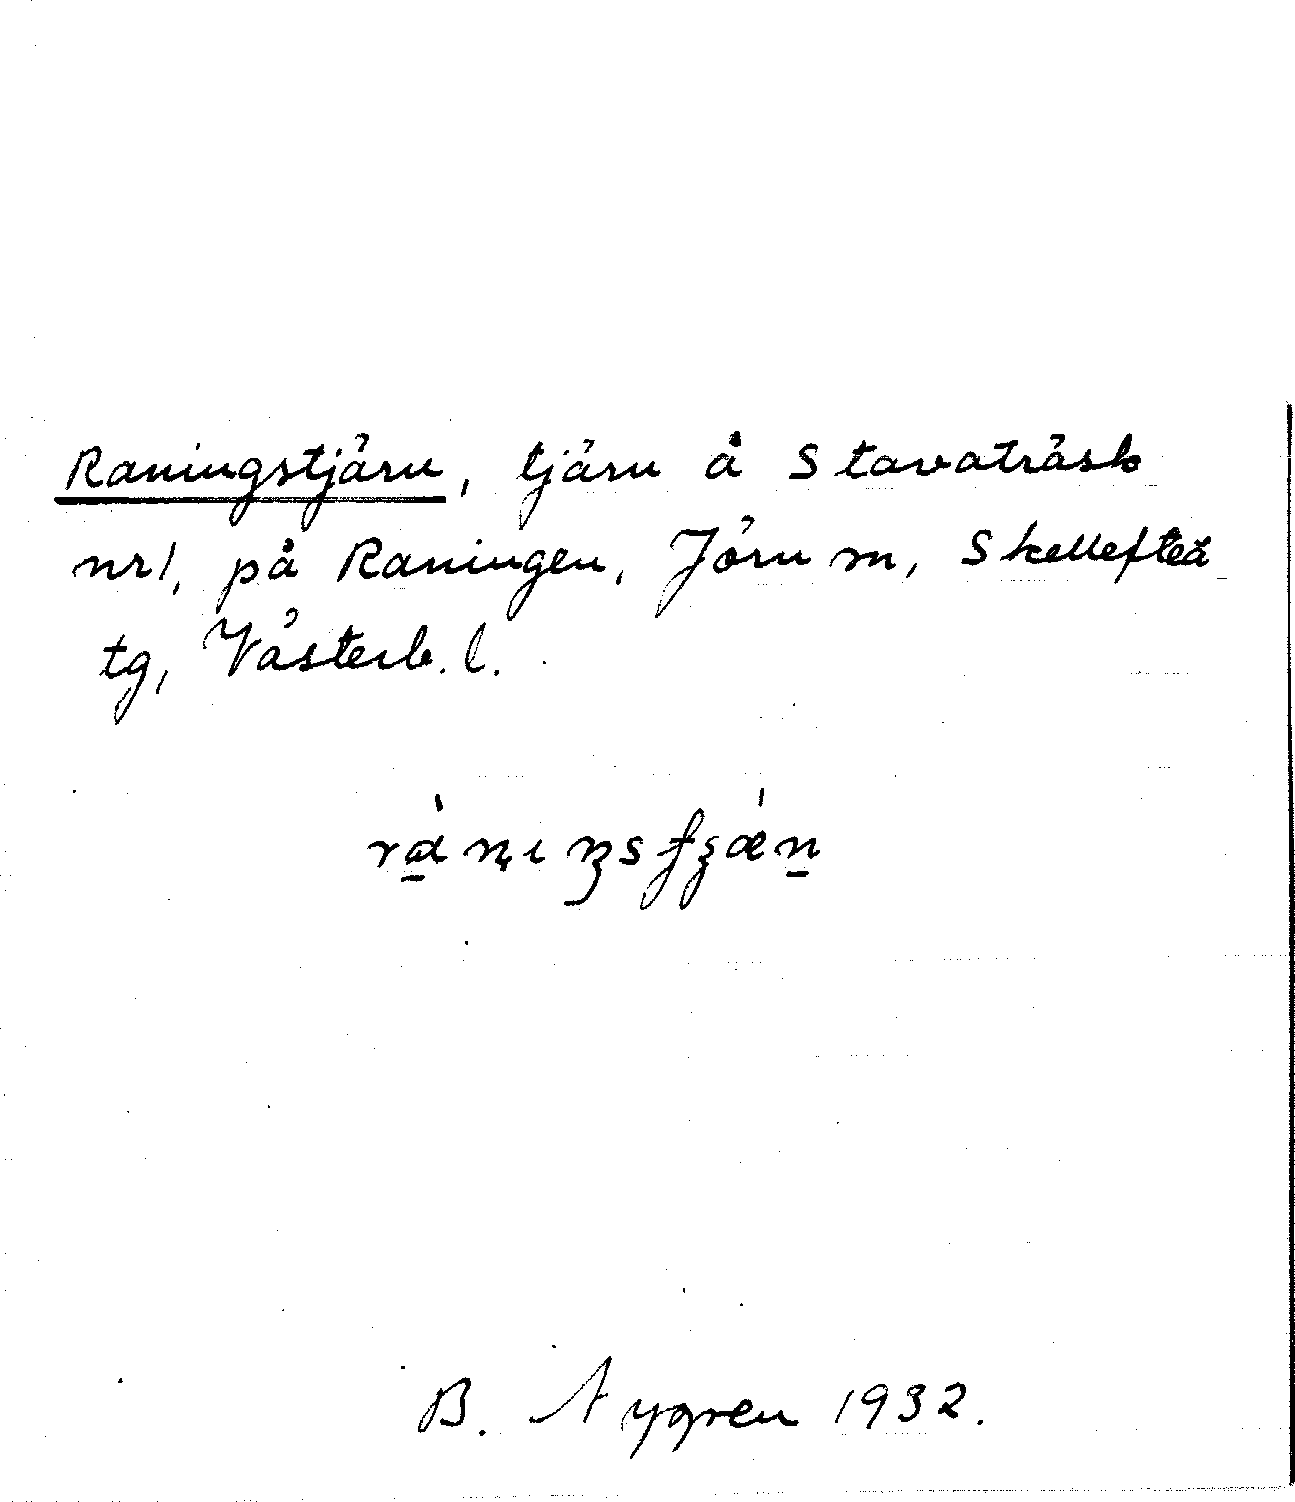 Raningstjärn, tjärn å Stavaträsk
nr 1, på Raningen, Jörn sn, Skellefteå
tg, Västerb. l.
B. Nygren 1932.